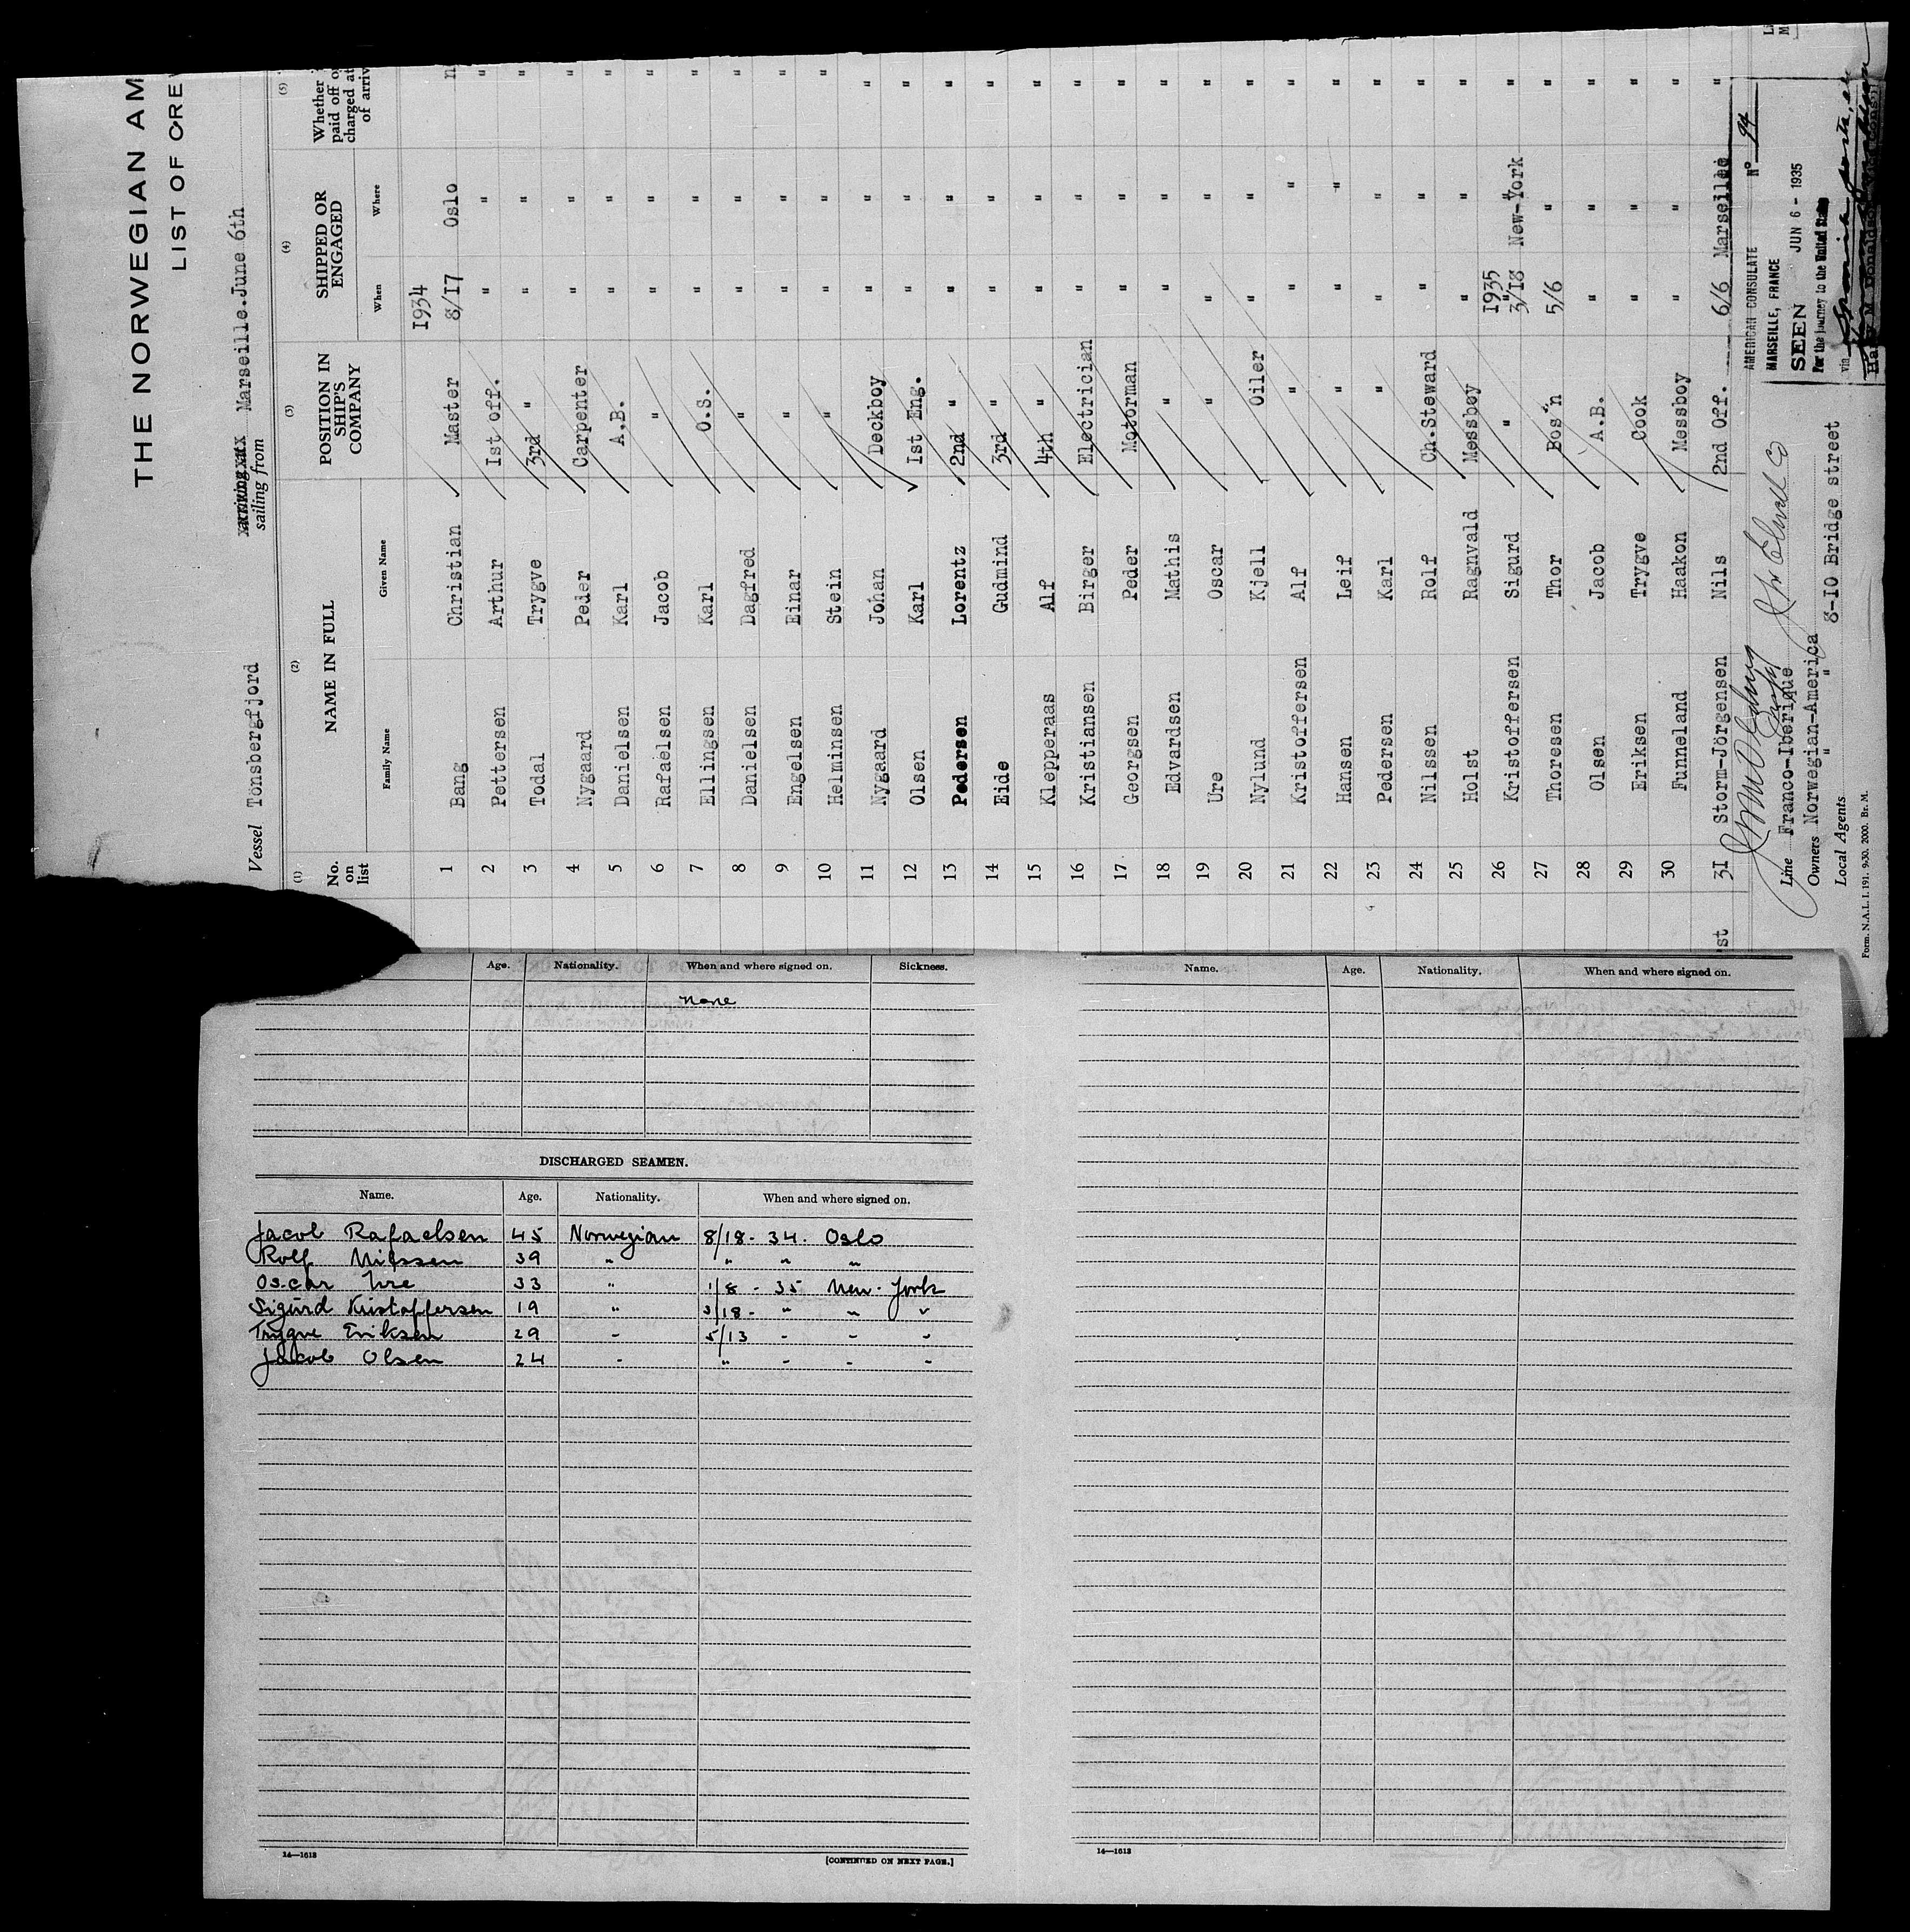 THE NORWEGIAN AM
LIST OF CREW
Vessel Tönsbergfjord sailing from Marseille. June 6th
(1) (2) (3) (4) (5)
No. on list NAME IN FULL POSITION IN SHIP'S COMPANY SHIPPED OR ENGAGED Whether paid off or charged at of arriv
Family Name Given Name When Where
1934
1 Bang Christian Master 8/17 Oslo n
2 Pettersen Arthur 1st Off. " " "
3 Todal Trygve 3rd " " " "
4 Nygaard Peder Carpenter " " "
5 Danielsen Karl A.B. " " "
6 Rafaelsen Jacob " " " "
7 Ellingsen Karl O.S. " " "
8 Danielsen Dagfred " " " "
9 Engelsen Einar " " " "
10 Helminsen Stein " " " "
11 Nygaard Johan Deckboy " " "
12 Olsen Karl 1st Eng. " " "
13 Pedersen Lorentz 2nd " " " "
14 Eide Gudmind 3rd " " " "
15 Klepperaas Alf 4th " " " "
16 Kristiansen Birger Electrician " " "
17 Georgsen Peder Motorman " " "
18 Edvardsen Mathis " " " "
19 Ure Oscar " " " "
20 Nylund Kjell Oiler " " "
21 Kristoffersen Alf " " " "
22 Hansen Leif " " " "
23 Pedersen Karl " " " "
24 Nilssen Rolf Ch.Steward " " "
25 Holst Ragnvald Messboy " " "
1935
26 Kristoffersen Sigurd " 3/18 New-York "
27 Thoresen Thor Bos'n 5/6 " "
28 Olsen Jacob A.B. " " "
29 Eriksen Trygve Cook " " "
30 Funneland Haakon Messboy " " "
st 31 Storm-Jörgensen Nils 2nd Off. 6/6 Marseille "
Line Franco-Iberique
Owners Norwegian-America
Local Agents " " 8-10 Bridge street
Form. N.A.L. I. 191. 9-30. 2000. Br. M.
AMERICAN CONSULATE No 94
MARSEILLE, FRANCE
SEEN JUN 6 - 1935
For the journey to the United States
via
Age. Nationality. When and where signed on. Sickness.
none
DISCHARGED SEAMEN.
Name. Age. Nationality. When and where signed on.
Jacob Rafaelsen 45 Norwegian 8/18 - 34. Oslo
Rolf Nilssen 39 " " " "
Oscar Ure 33 " 1/8 - 35 New-York
Sigurd Kristoffersen 19 " 3/18 - " " "
Trygve Eriksen 29 - 5/13 - - -
Jacob Olsen 24 - " - - -
14—1613
[CONTINUED ON NEXT PAGE.]
Name. Age. Nationality. When and where signed on.
14—1613